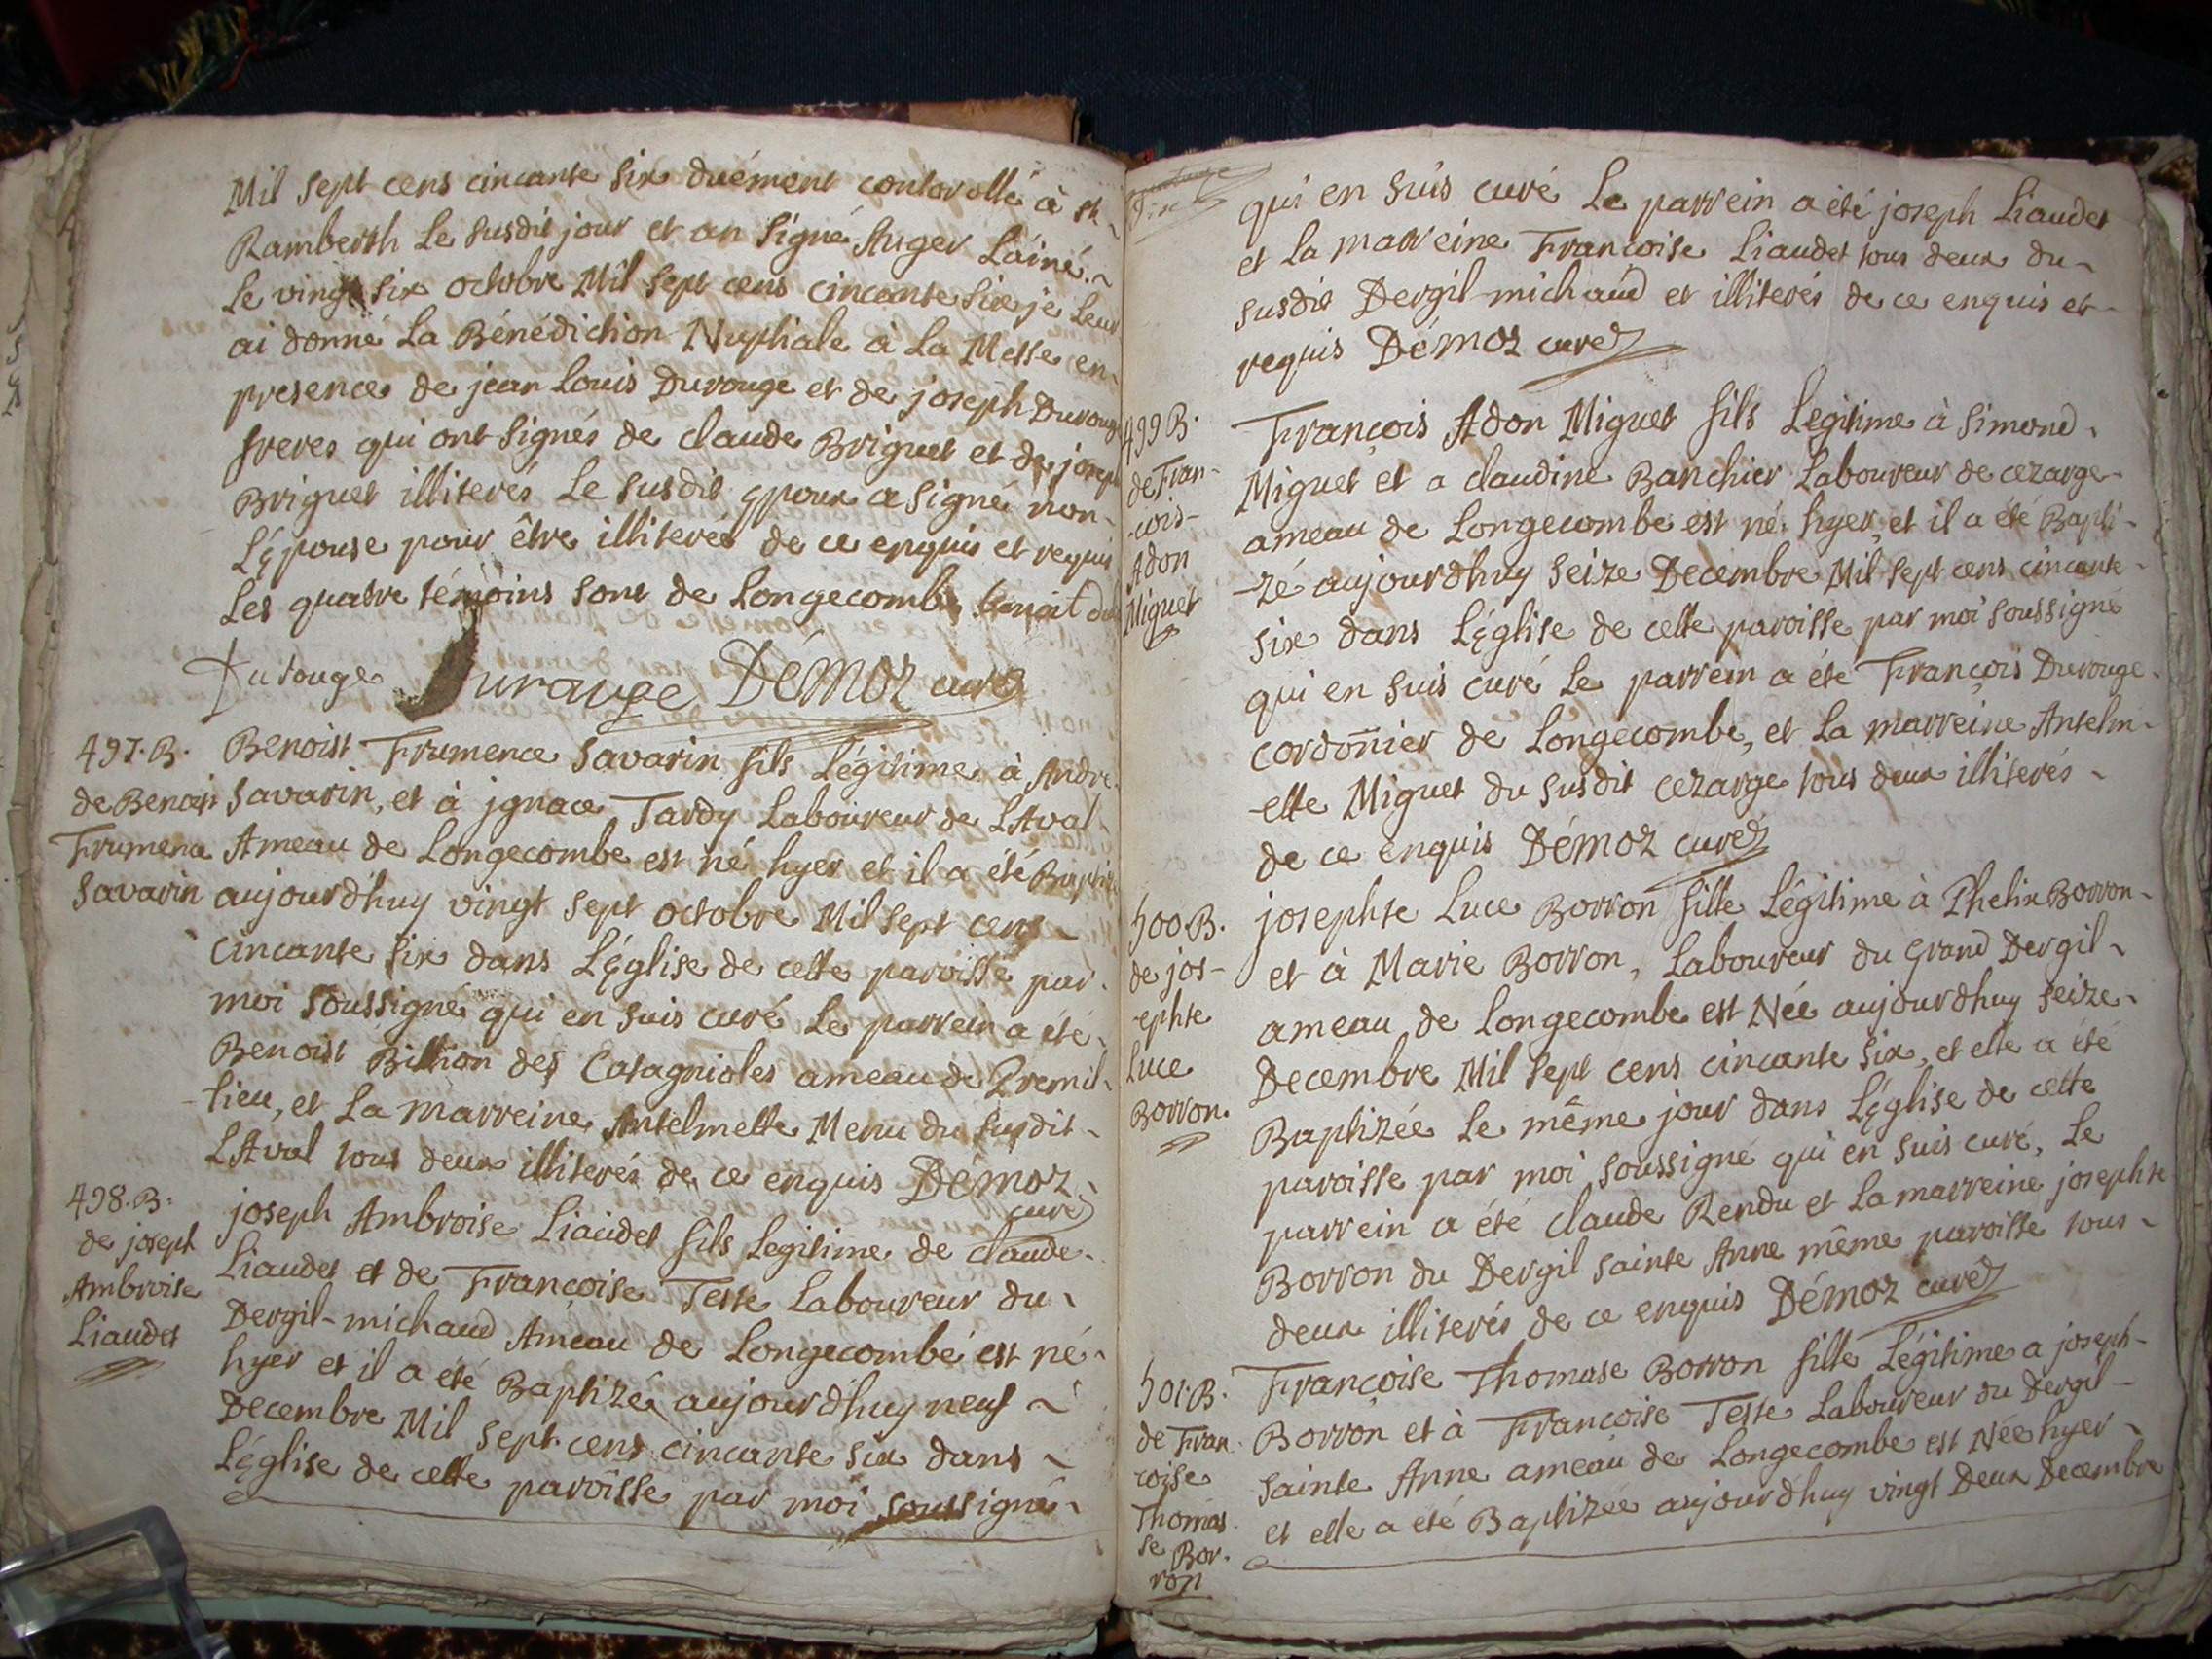 Mil sept cens cincante six duément controllé à st
Ramberth Le susdit jour et an signé Auger Láiné.
Le vingt six octobre Mil sept cens cincante six je leur
ai donné La Bénédiction Nuptiale à La Messe en
presence de jean Louis Durouge et de joseph Durouge
freres qui ont signés de claude Briguet et de joseph
Briguet illiterés Le susdit époux a signé non
L'épouse pour être illiterée de ce enquis et requis
Les quatre témoins sont de Longecombe benoit du
Durouge Durouge Démoz curé
497. B.
de Benoist
Frumence
Savarin
Benoist Frumence Savarin fils Légitime à André
Savarin, et à jgnace Tardy Laboureur de LAval
Ameau de Longecombe est né hyer et il a été Baptizé
aujourd'huy vingt sept octobre Mil sept cens
cincante six dans L'église de cette paroisse par
moi soussigné qui en suis curé Le parrein a été
Benoist Billion des Catagnioles ameau de Premil-
-lieu, et La marreine Antelmette Menu du susdit
LAval tous deux illiterés de ce enquis Démoz
curé
498. B.
de joseph
Ambroise
Liaudet
joseph Ambroise Liaudet fils Legitime de claude
Liaudet et de Francoise Teste Laboureur du
Dergil-michaud Ameau de Longecombe est né
hyer et il a été Baptizé aujourd'huy neuf
Decembre Mil sept cens cincante six dans
L'église de cette paroisse par moi soussigné
qui en suis curé Le parrein a été joseph Liaudet
et La marreine Francoise Liaudet tous deux du
susdit Dergil-michaud et illiterés de ce enquis et
requis Démoz curé
499 B.
de Fran-
-cois-
Adon
Miguet
François Adon Miguet fils Legitime à Simond
Miguet et a claudine Banchier Laboureur de cezarge
ameau de Longecombe est né hyer, et il a été Bapti-
-zé aujourdhuy seize Decembre Mil sept cens cincante
six dans L'église de cette paroisse par moi soussigné
qui en suis curé Le parrein a été François Durouge
cordonnier de Longecombe, et La marreine Antelm-
-ette Miguet du susdit cezarge tous deux illiterés
de ce enquis Démoz curé
500. B.
de jos-
-ephte
Luce
Borron.
josephte Luce Borron fille Légitime à Phelix Borron
et à Marie Borron, Laboureur du grand Dergil
ameau de Longecombe est Née aujourdhuy seize
Decembre Mil sept cens cincante six, et elle a été
Baptizée Le même jour dans L'église de cette
paroisse par moi soussigné qui en suis curé, Le
parrein a été claude Rendu et La marreine josephte
Borron du Dergil sainte Anne même paroisse tous
deux illiterés de ce enquis Démoz curé
501. B.
de Fran-
coise
Thomas
se Bor-
ron
Françoise Thomase Borron fille Légitime a joseph
Borron et à Françoise Teste Laboureur du Dergil
sainte Anne ameau de Longecombe est Née hyer
et elle a été Baptizée aujourdhuy vingt Deux Decembre